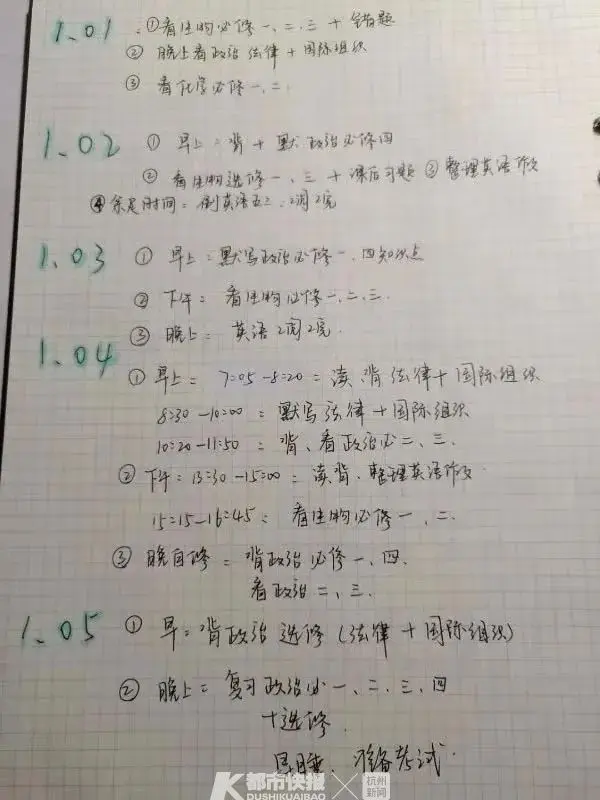 1.01 ①看生物必修一、二、三 + 错题
② 晚上看政治 法律 + 国际组织
③ 看化学必修一、二.
1.02 ① 早上:背 + 默 政治必修四
② 看生物选修一、三 + 课后习题 ③ 整理英语作文
④ 余足时间: 刷英语五三: 2阅2完
1.03 ① 早上:默写政治必修一、四知识点
② 下午: 看生物必修一、二、三.
③ 晚上: 英语 2阅2完.
1.04
① 早上: 7:05-8:20: 读、背 法律+国际组织
8:30-10:00: 默写法律+国际组织
10:20-11:50: 背、看政治必二、三.
② 下午: 13:30-15:00: 读背、整理英语作文
15:15-16:45: 看生物必修一、二.
③ 晚自修: 背政治必修一、四.
看政治二、三.
1.05 ① 早: 背政治选修(法律+国际组织)
② 晚上: 复习政治必一、二、三、四
+选修.
早睡、准备考试.
都市快报 × 杭州新闻
DUSHIKUAIBAO